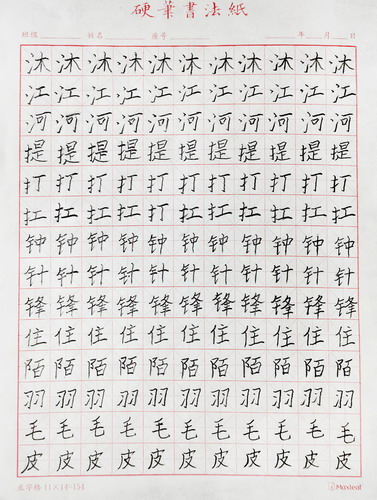 硬筆書法紙
班級 姓名 座号 年 月 日
沐 沐 沐 沐 沐 沐 沐 沐 沐 沐 沐
江 江 江 江 江 江 江 江 江 江 江
河 河 河 河 河 河 河 河 河 河 河
提 提 提 提 提 提 提 提 提 提 提
打 打 打 打 打 打 打 打 打 打 打
扛 扛 扛 扛 扛 扛 扛 扛 扛 扛 扛
钟 钟 钟 钟 钟 钟 钟 钟 钟 钟 钟
针 针 针 针 针 针 针 针 针 针 针
锋 锋 锋 锋 锋 锋 锋 锋 锋 锋 锋
住 住 住 住 住 住 住 住 住 住 住
陌 陌 陌 陌 陌 陌 陌 陌 陌 陌 陌
羽 羽 羽 羽 羽 羽 羽 羽 羽 羽 羽
毛 毛 毛 毛 毛 毛 毛 毛 毛 毛 毛
皮 皮 皮 皮 皮 皮 皮 皮 皮 皮 皮
生字格·11×14-154 Maxleaf